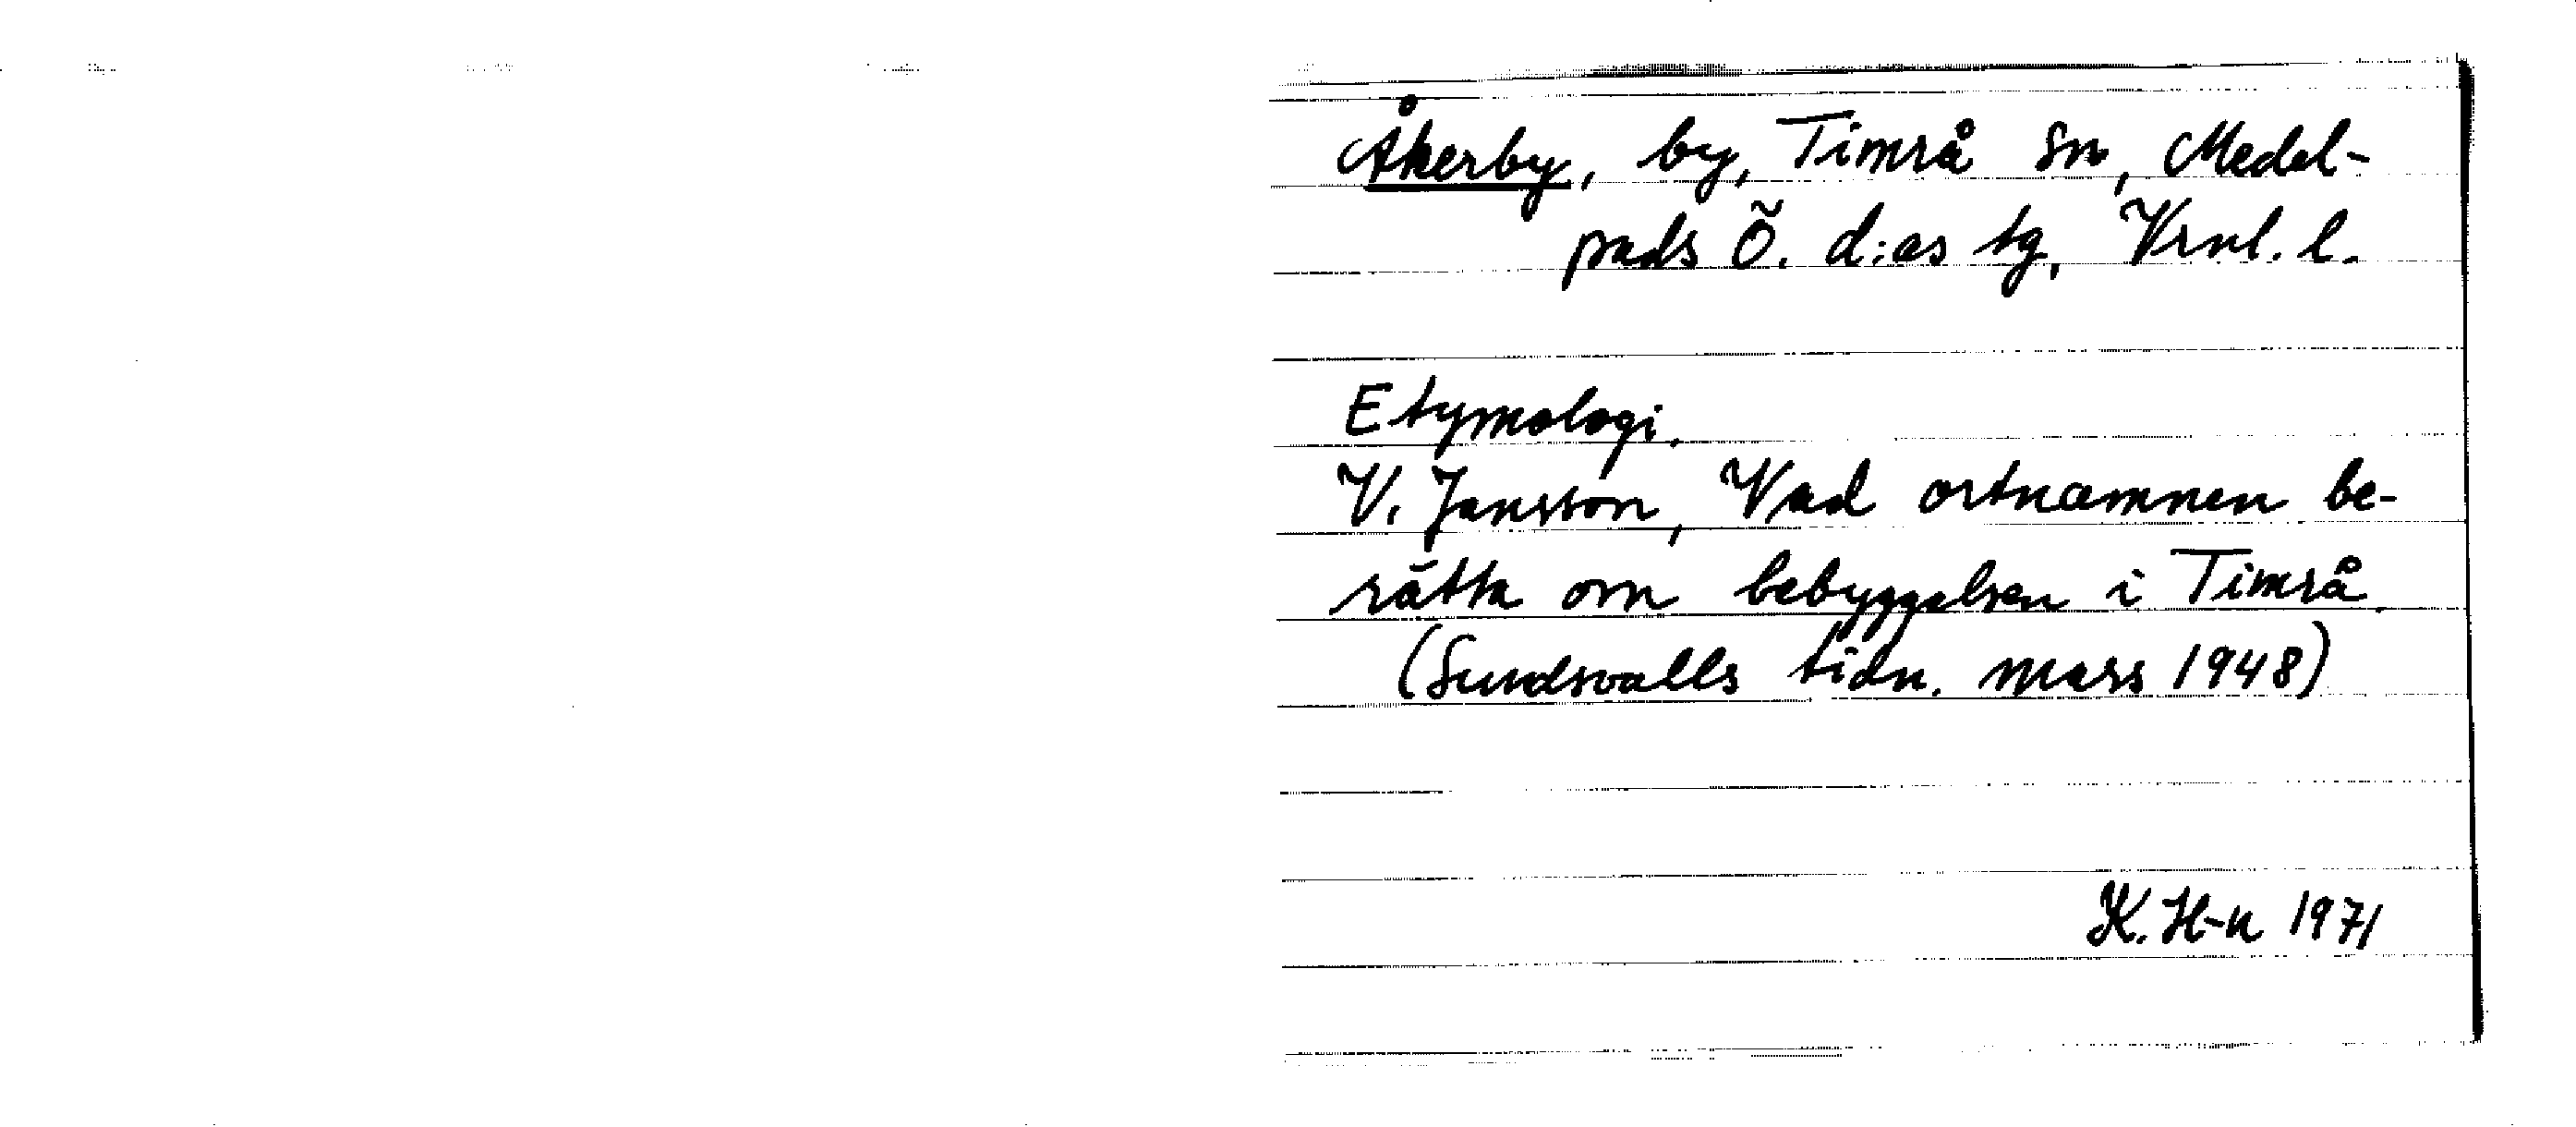 Åkerby, by, Timrå sn, Medel-
pads Ö. d:as tg, Vrnl. l.
Etymologi.
V. Jansson, Vad ortnamnen be-
rätta om bebyggelsen i Timrå.
(Sundsvalls tidn. mars 1948)
K. H-n 1971